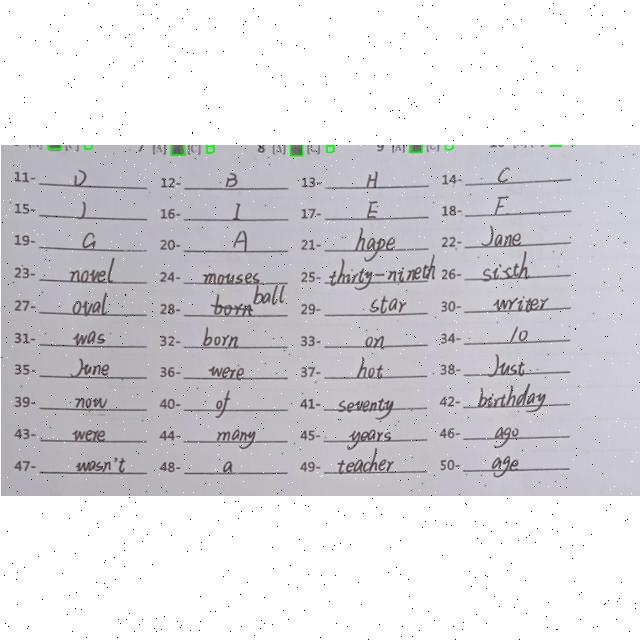 7 [A] [C] B 8 [A] [C] B 9 [A] [C]
11- D 12- B 13- H 14- C
15- J 16- I 17- E 18- F
19- G 20- A 21- hape 22- Jane
23- novel 24- mouses 25- thirty-nineth 26- sixth
27- oval 28- born ball 29- star 30- writer
31- was 32- born 33- on 34- 10
35- June 36- were 37- hot 38- Just
39- now 40- of 41- seventy 42- birthday
43- were 44- many 45- years 46- ago
47- wasn't 48- a 49- teacher 50- age